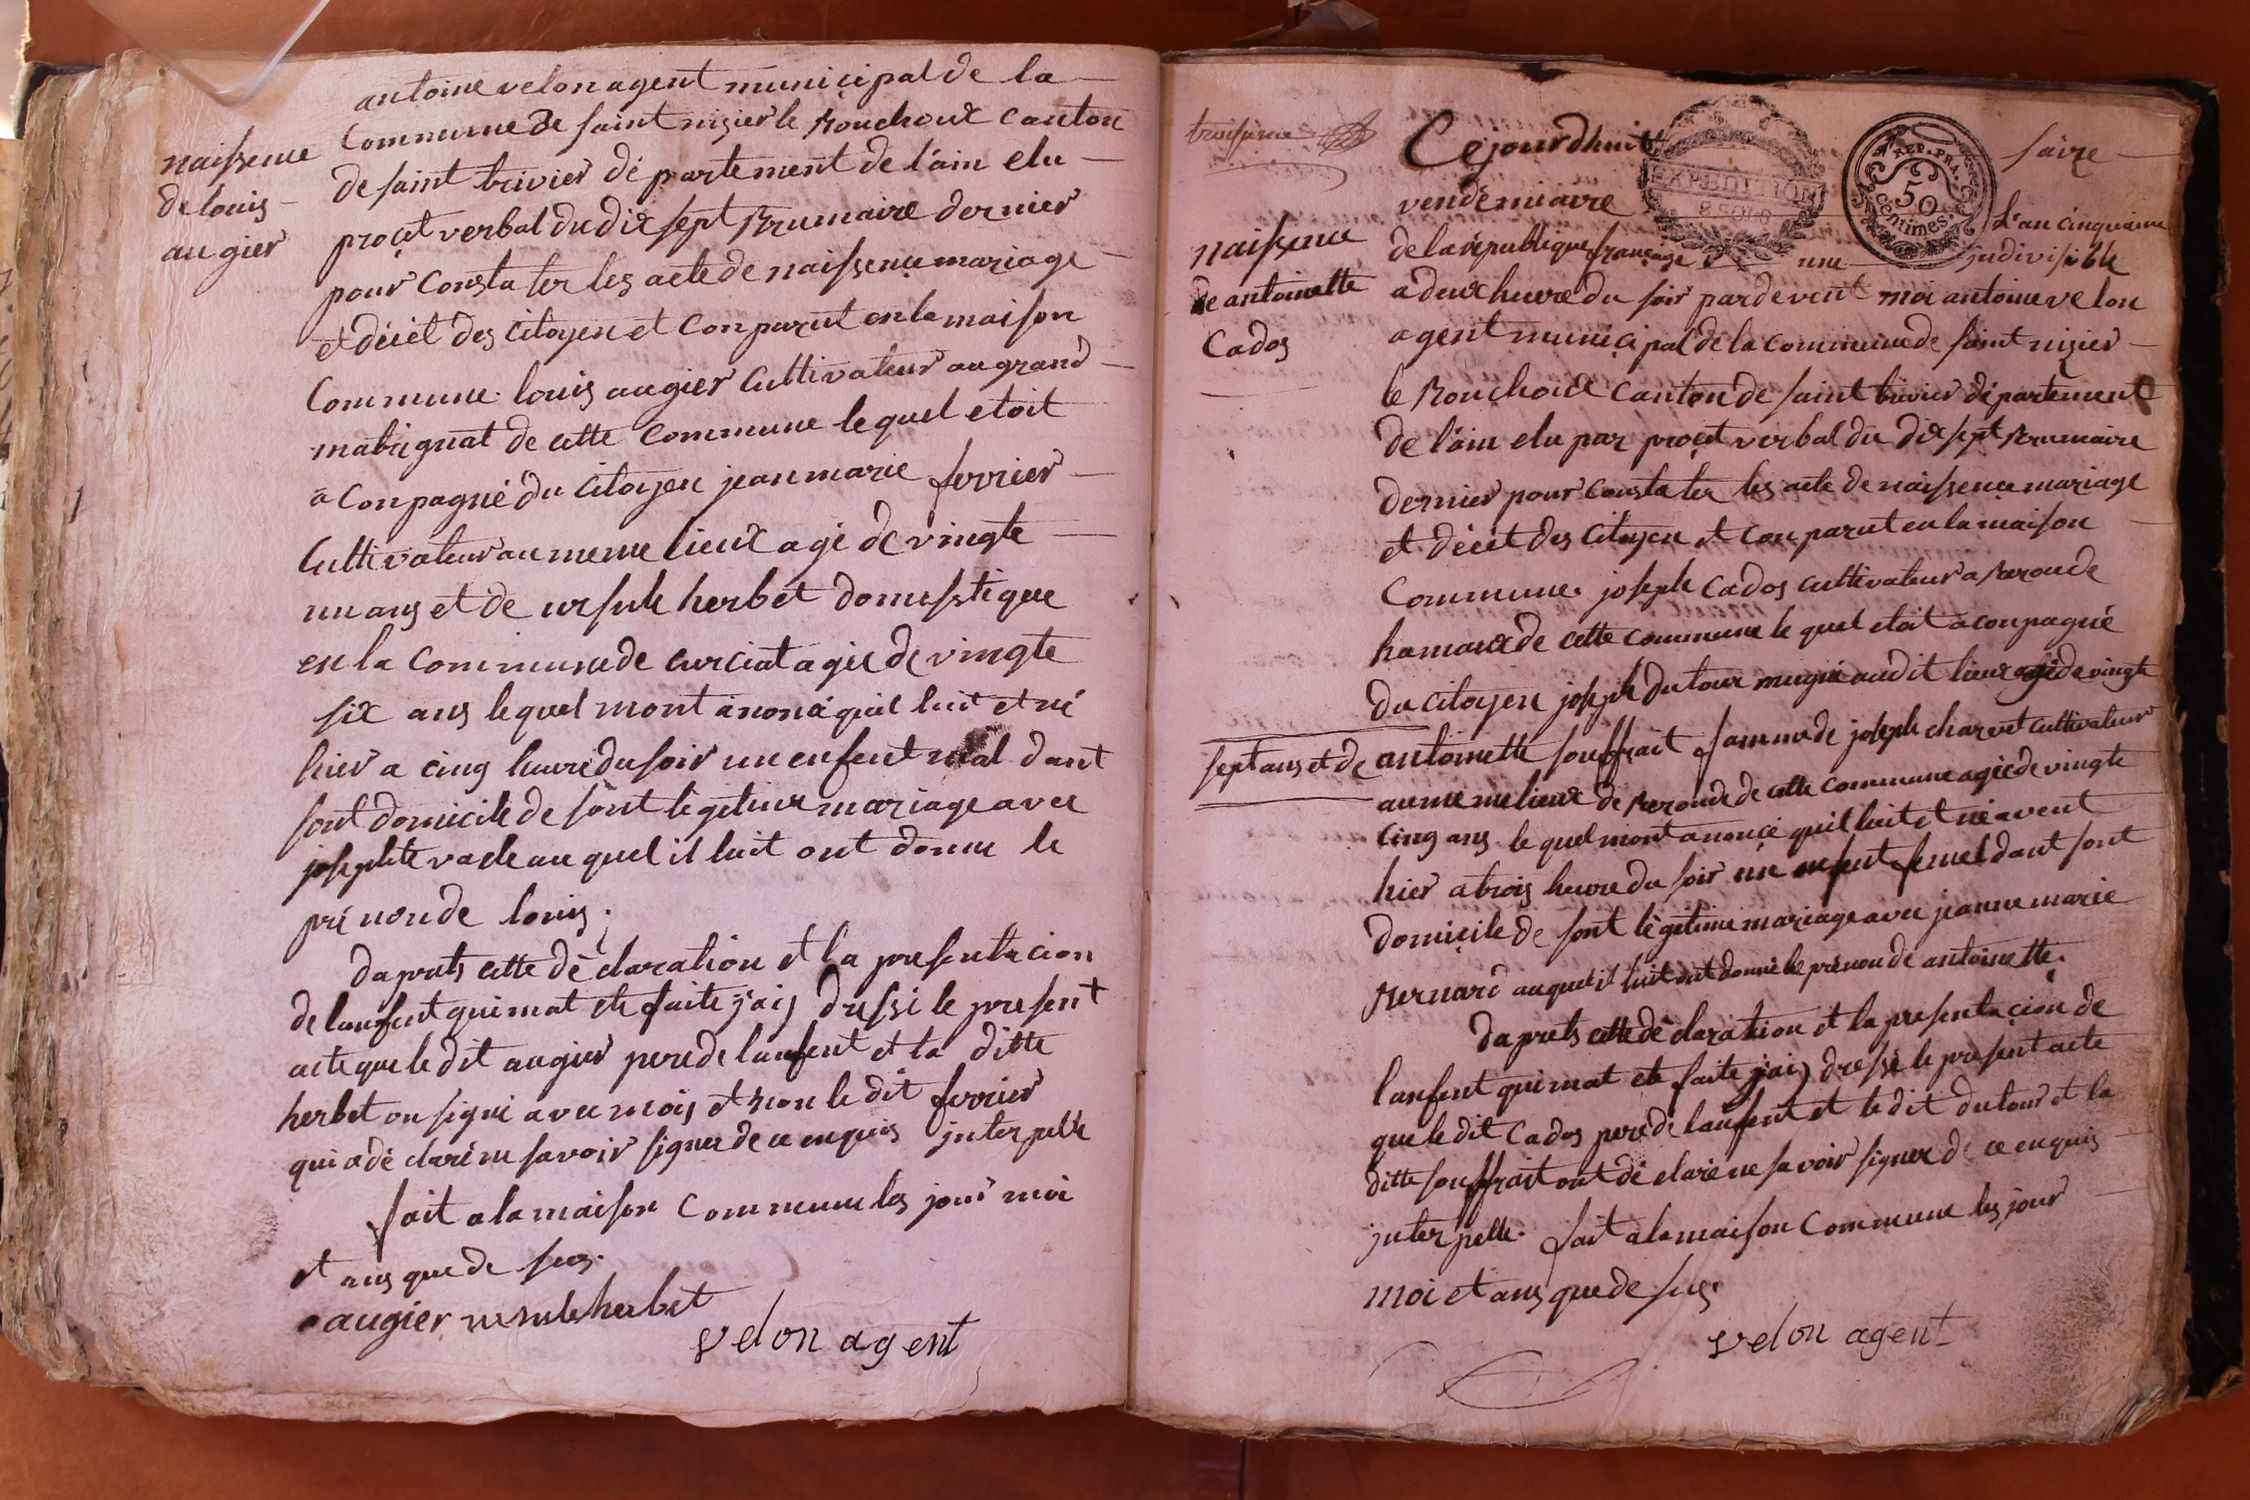 naissence
de louis
augier
antoine velon agent municipal de la
Commune de saint nizier le Bouchoux canton
de saint trivier département de l'ain elu
proçet verbal du dix sept Brumaire dernier
pour Constater les acte de naissençe mariage
et décét des Citoyen et Conparut en la maison
Commune. louis augier Cultivateur au grand
matrignat de cette Commune le quel etoit
aconpagné du Citoyen jean marie fevrier
Cultivateur au meme lieux agé de vingte
un ans et de ursule herbet domestique
en la Commune de curciat agée de vingte
six ans le quel mont anoncé quil luit et né
hier a cinq heure du soir un enfent mal dant
sont domicile de sont légetime mariage avec
josephte vacle au quel il luit ont donné le
prénon de louis.
daprets cette déclaration et la presentacion
de lanfent qui mat ete faite j'aij dressé le present
acte que le dit augier pere de lanfent et la ditte
herbet on signé avec mois et non le dit fevrier
qui a déclaré ne savoir signer de ce enquis jnterpellé
fait a la maison Commune les jour moi
et ans que de sus.
augier ursule herbet
velon agent
troisieme
naissence
de antoinette
Cados
Cejourdhuit
saire
EXPEDITION
8 SOLS
REP. FRA.
50
centimes.
vendémiaire
L'an cinquieme
de la république françaige
une
jndivisible
a deux heure du soir pardevent moi antoine velon
agent muniçipal de la commune de saint nizier
le Bouchoux Canton de saint trivier département
de l'ain elu par proçet verbal du dix sept Brumaire
dernier pour Constater les acte de naissençe mariage
et décét des Citoyen et Conparut en la maison
Commune. joseph Cados cultivateur a Beronde
hamaux de cette commune le quel etoit aconpagné
du citoyen joseph dutour mugnié audit lieux agé de vingte
sept ans et de antoinette souffrait famme de joseph charvet cultivateur
au meme lieux de Beronde de cette commune agée de vingte
cinq ans le quel mont anonçé quil luit et né avent
hier a trois heure du soir une enfent femel dant sont
domiçile de sont légetime mariage avec jeanne marie
Bernard auquel il luit ont donné le prénon de antoinette.
daprets cette déclaration et la presentaçion de
lanfent qui mat ete faite j'aij dressé le present acte
que le dit Cados pere de lanfent et le dit dutour et la
ditte souffrait ont déclaré ne savoir signer de ce enquis
jnterpellé. fait a la maison Commune les jour
moi et ans que de sus.
velon agent